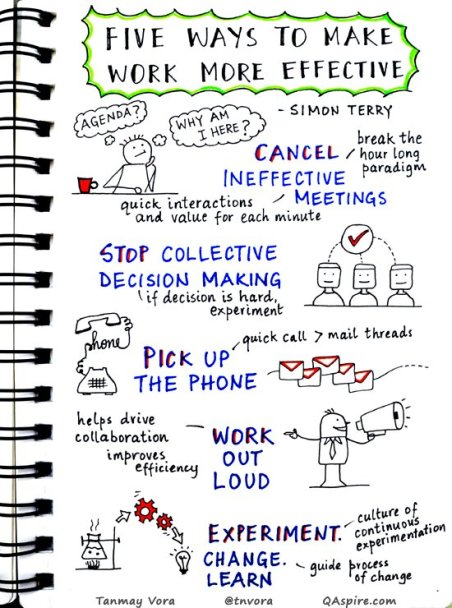 FIVE WAYS TO MAKE
WORK MORE EFFECTIVE
- SIMON TERRY
AGENDA?
WHY AM
I HERE?
CANCEL
INEFFECTIVE
MEETINGS
break the
hour long
paradigm
quick interactions
and value for each minute
STOP COLLECTIVE
DECISION MAKING
if decision is hard,
experiment
phone
PICK UP
THE PHONE
quick call > mail threads
helps drive
collaboration
improves
efficiency
WORK
OUT
LOUD
EXPERIMENT.
CHANGE.
LEARN
culture of
continuous
experimentation
guide process
of change
Tanmay Vora
@tnvora
QAspire.com